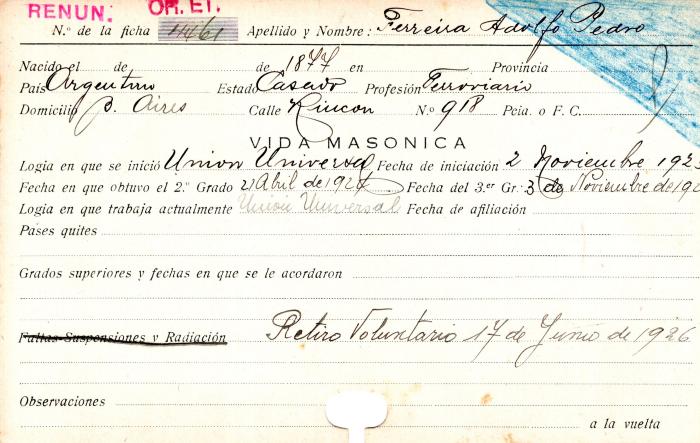 RENUN. OR. ET.
N.º de la ficha 14461 Apellido y Nombre: Ferreira Adolfo Pedro
Nacido el de de 1877 en Provincia
País Argentino Estado Casado Profesión Ferroviario
Domicilio B. Aires Calle Rincon N.º 918 Pcia. o F. C.
VIDA MASONICA
Logia en que se inició Union Universal Fecha de iniciación 2 Noviembre 192
Fecha en que obtuvo el 2.º Grado 21 Abril de 192 Fecha del 3.er Gr: 3 de Noviembre de 192
Logia en que trabaja actualmente Union Universal Fecha de afiliación
Pases quites
Grados superiores y fechas en que se le acordaron
Faltas-Suspensiones y Radiación Retiro Voluntario 17 de Junio de 1926
Observaciones
a la vuelta